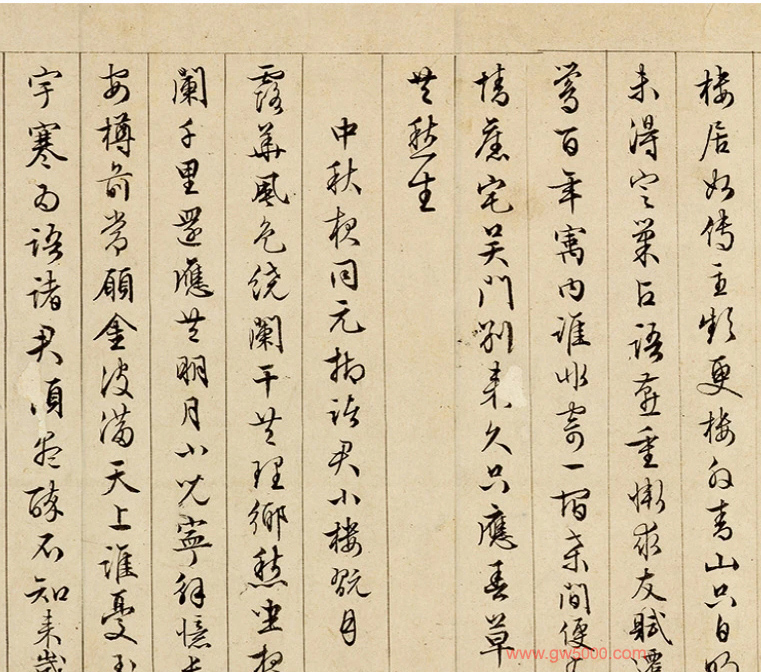 樓居如傳主頻更樓外青山只自
未得定巢占語燕重慚求友賦遷
鶯百年寓內誰非寄一榻間便
情舊宅吴門別來久只應春草
共愁生
中秋夜同元抑諸君小樓翫月
露華風色繞闌干共理鄉愁坐夜
闌千里還應共明月小兒寧解憶長
安樽前常願金波滿天上誰憂玉
宇寒為語諸君須盡醉不知來歲
www.gw5000.com